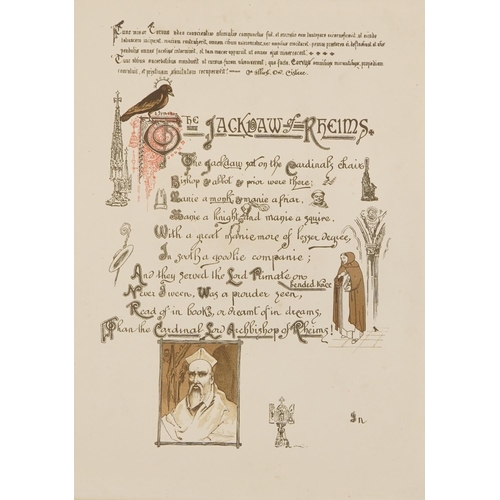 Tunc miser Corvus adeo conscientiae stimulis compunctus fuit, et execratio eum tantopere excarneficavit, ut exinde
tabescere inciperet, maciem contraheret, omnem cibum aversaretur, nec amplius crocitaret: pennae praeterea ei defluebant, et alis
pendulis omnes facetias intermisit, et tam macer apparuit, ut omnes ejus miserescerent.
Tunc abbas sacerdotibus mandavit ut rursus furem absolverent; quo facto, Corvus, omnibus mirantibus, propediem
convaluit, et pristinam sanitatem recuperavit. — De Illust. Ord. Cisterc.
The Jackdaw of Rheims.
The Jackdaw sat on the Cardinal's chair
Bishop & abbot & prior were there;
Manie a monk, & manie a friar,
Manie a knight, and manie a squire,
With a great manie more of lesser degree,
In sooth a goodlie companie;
And they served the Lord Primate on
bended knee
Never, I ween, Was a prouder seen,
Read of in books, or dreamt of in dreams,
Than the Cardinal Lord Archbishop of Rheims!
In